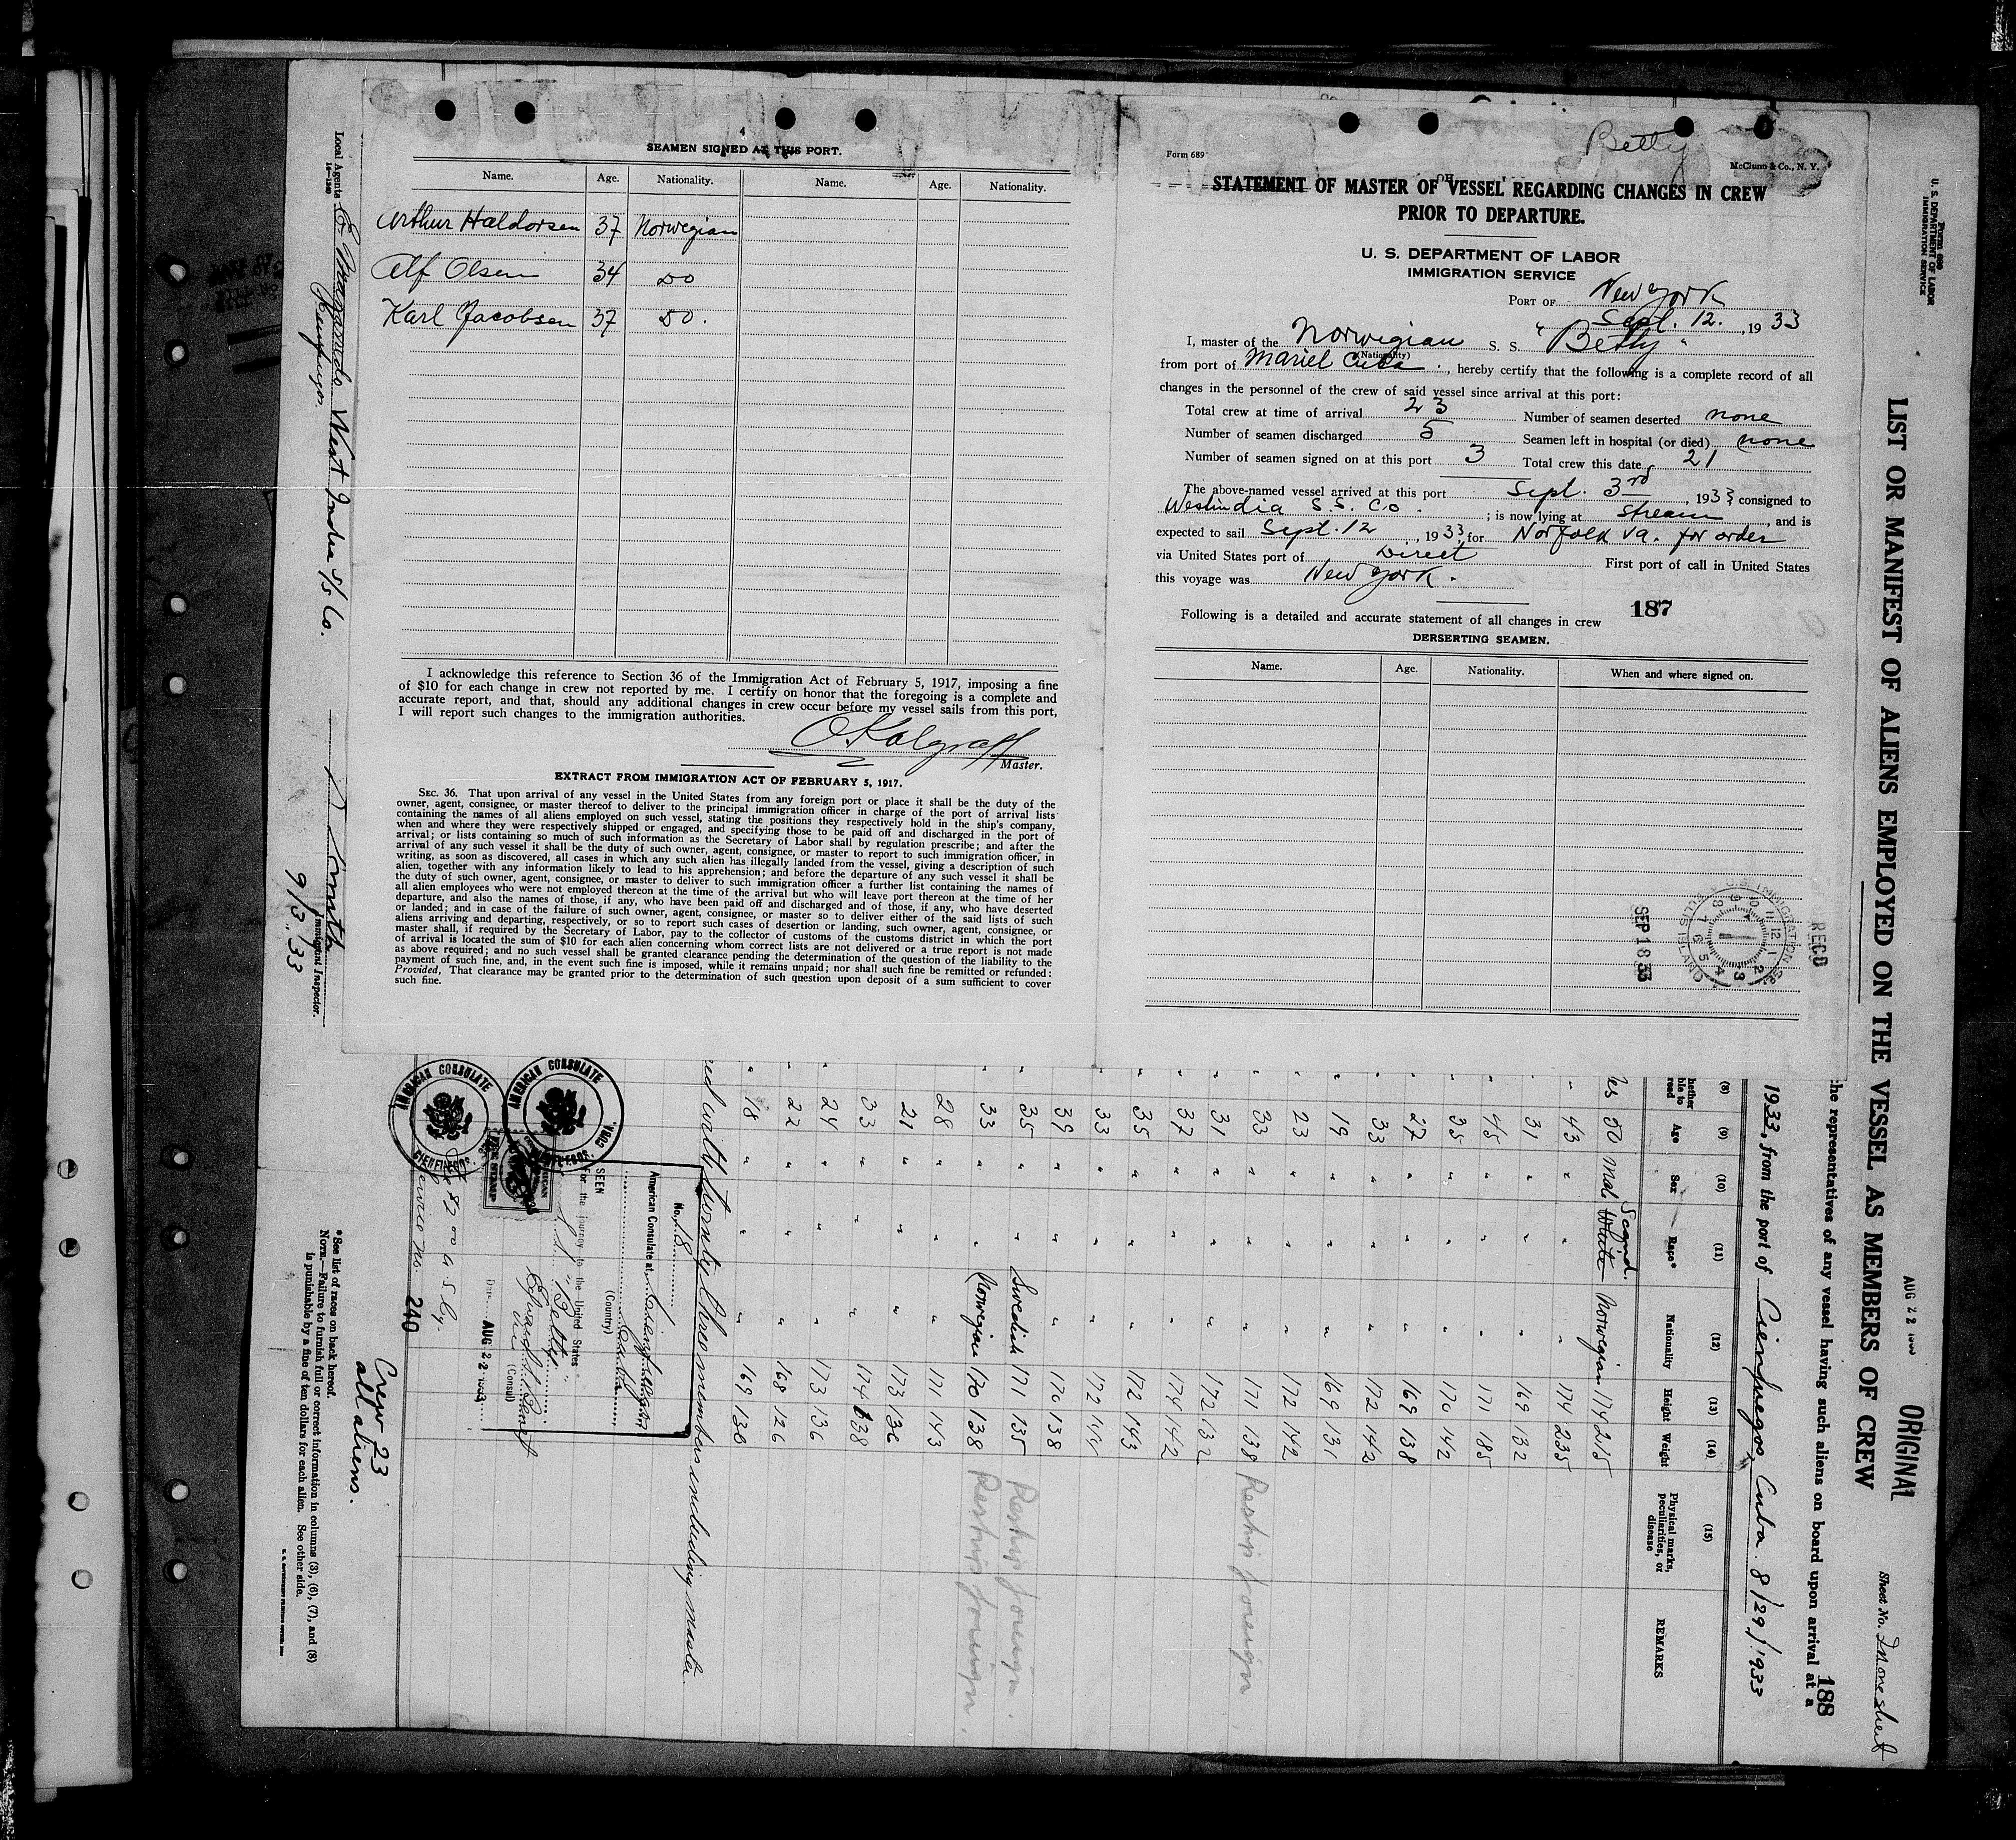 4
SEAMEN SIGNED AT THIS PORT.
Name. Age. Nationality. Name. Age. Nationality.
Arthur Haldorsen 37 Norwegian
Alf Olsen 34 Do
Karl Jacobsen 37 Do.
I acknowledge this reference to Section 36 of the Immigration Act of February 5, 1917, imposing a fine
of $10 for each change in crew not reported by me. I certify on honor that the foregoing is a complete and
accurate report, and that, should any additional changes in crew occur before my vessel sails from this port,
I will report such changes to the immigration authorities.
Master.
EXTRACT FROM IMMIGRATION ACT OF FEBRUARY 5, 1917.
SEC. 36. That upon arrival of any vessel in the United States from any foreign port or place it shall be the duty of the
owner, agent, consignee, or master thereof to deliver to the principal immigration officer in charge of the port of arrival lists
containing the names of all aliens employed on such vessel, stating the positions they respectively hold in the ship's company,
when and where they were respectively shipped or engaged, and specifying those to be paid off and discharged in the port of
arrival; or lists containing so much of such information as the Secretary of Labor shall by regulation prescribe; and after the
arrival of any such vessel it shall be the duty of such owner, agent, consignee, or master to report to such immigration officer, in
writing, as soon as discovered, all cases in which any such alien has illegally landed from the vessel, giving a description of such
alien, together with any information likely to lead to his apprehension; and before the departure of any such vessel it shall be
the duty of such owner, agent, consignee, or master to deliver to such immigration officer a further list containing the names of
all alien employees who were not employed thereon at the time of the arrival but who will leave port thereon at the time of her
departure, and also the names of those, if any, who have been paid off and discharged and of those, if any, who have deserted
or landed; and in case of the failure of such owner, agent, consignee, or master so to deliver either of the said lists of such
aliens arriving and departing, respectively, or so to report such cases of desertion or landing, such owner, agent, consignee, or
master shall, if required by the Secretary of Labor, pay to the collector of customs of the customs district in which the port
of arrival is located the sum of $10 for each alien concerning whom correct lists are not delivered or a true report is not made
as above required; and no such vessel shall be granted clearance pending the determination of the question of the liability to the
payment of such fine, and, in the event such fine is imposed, while it remains unpaid; nor shall such fine be remitted or refunded:
Provided, That clearance may be granted prior to the determination of such question upon deposit of a sum sufficient to cover
such fine.
Betty
Form 689
McClunn & Co., N. Y.
STATEMENT OF MASTER OF VESSEL REGARDING CHANGES IN CREW
PRIOR TO DEPARTURE.
U. S. DEPARTMENT OF LABOR
IMMIGRATION SERVICE
PORT OF New York
Sept. 12. , 19 33
I, master of the Norwegian S. S. "Betty"
(Nationality)
from port of Mariel Cuba , hereby certify that the following is a complete record of all
changes in the personnel of the crew of said vessel since arrival at this port:
Total crew at time of arrival 23 Number of seamen deserted none
Number of seamen discharged 5 Seamen left in hospital (or died) none
Number of seamen signed on at this port 3 Total crew this date 21
The above-named vessel arrived at this port Sept. 3rd , 1933 consigned to
Westindia S.S. Co. ; is now lying at stream , and is
expected to sail Sept. 12 , 19 33, for Norfolk Va. for order
via United States port of Direct First port of call in United States
this voyage was New York.
187
Following is a detailed and accurate statement of all changes in crew
DERSERTING SEAMEN.
Name. Age. Nationality. When and where signed on.
REC'D
SEP 18 33
Form 689
U. S. DEPARTMENT OF LABOR
IMMIGRATION SERVICE
ORIGINAL
Sheet No. In one sheet
LIST OR MANIFEST OF ALIENS EMPLOYED ON THE VESSEL AS MEMBERS OF CREW
the representatives of any vessel having such aliens on board upon arrival at a
188
1933, from the port of Cienfuegos, Cuba. 8/29/1933
(8) (9) (10) (11) (12) (13) (14) (15)
Age Sex Race* Nationality Height Weight Physical marks, peculiarities, or disease REMARKS
50 Male White Scand. Norwegian 174 215
43 " " " 174 235
31 " " " 169 132
45 " " " 171 185
35 " " " 170 142
27 " " " 169 138
33 " " " 172 142
19 " " " 169 131
23 " " " 172 142
33 " " " 171 138 Reship foreign
31 " " " 172 132
37 " " " 174 142
35 " " " 172 143
33 " " " 172
39 " " " 170 138
35 " " Swedish 171 135 Reship foreign.
33 " " Norwegian 170 138 Reship foreign.
28 " " " 171 143
21 " " " 173 136
33 " " " 174 138
24 " " " 173 136
22 " " " 168 126
18 " " " 169 130
twenty three members including master.
No. 18
American Consulate at Cienfuegos
Cuba
(Country)
SEEN
For the journey to the United States
S.S. "Betty"
(Consul)
AUG 22 1933
AMERICAN CONSULATE
CIENFUEGOS, CUBA.
AMERICAN CONSULATE
CIENFUEGOS.
Service No. 240
Crew 23
all aliens.
*See list of races on back hereof.
NOTE.—Failure to furnish full or correct information in columns (3), (6), (7), and (8)
is punishable by a fine of ten dollars for each alien. See other side.
Local Agents
West India S/S Co.
Cienfuegos.
Immigrant Inspector.
9/3/33